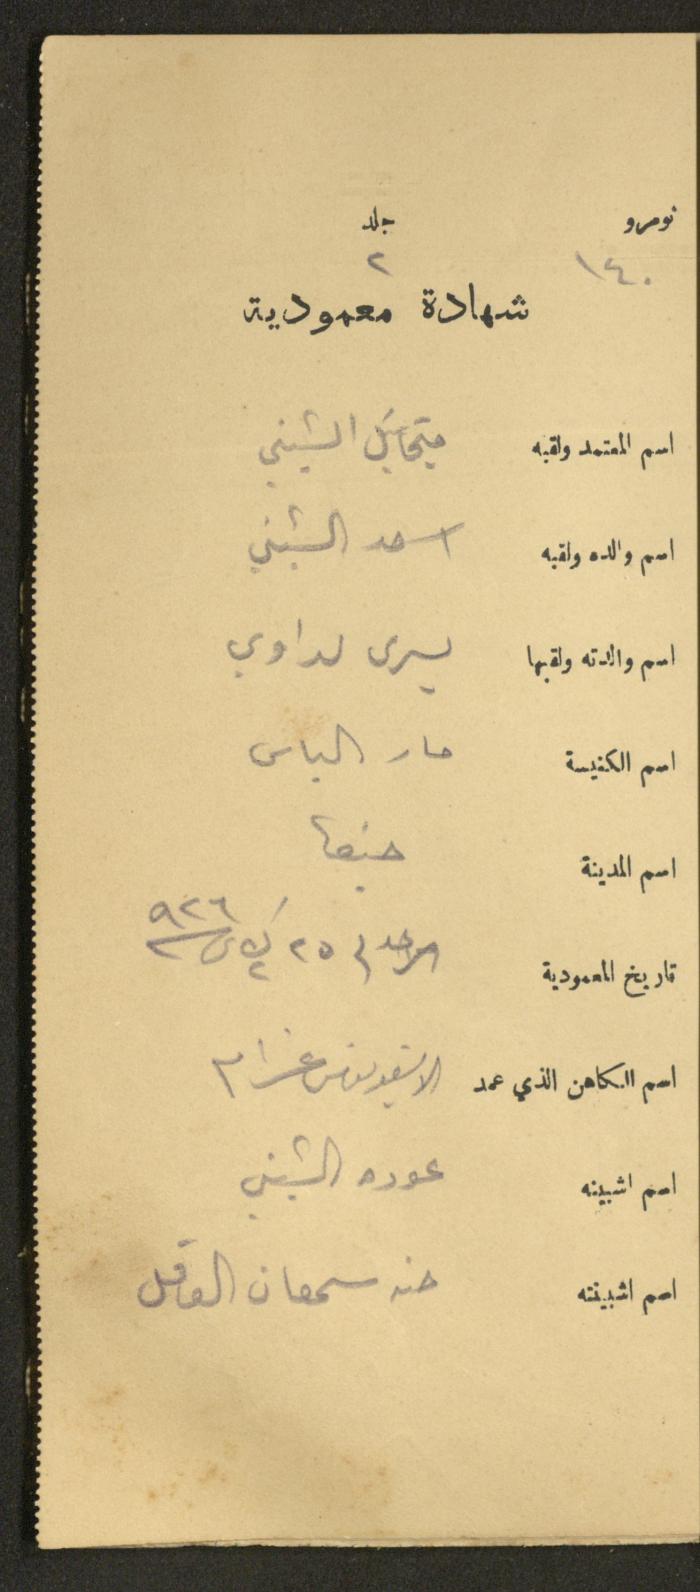 نومرو جلد
١٤٠ ٢
شهادة معمودية
اسم المعتمد ولقبه ميخائيل الشيني
اسم والده ولقبه اسعد الشيني
اسم والدته ولقبها يسرى لداوي
اسم الكنيسة مار الياس
اسم المدينة حيفا
تاريخ المعمودية الاحد في ٢٥ ك٢ ٩٢٦
اسم الكاهن الذي عمد
اسم اشبينه عوده الشيني
اسم اشبينته حنه سمعان